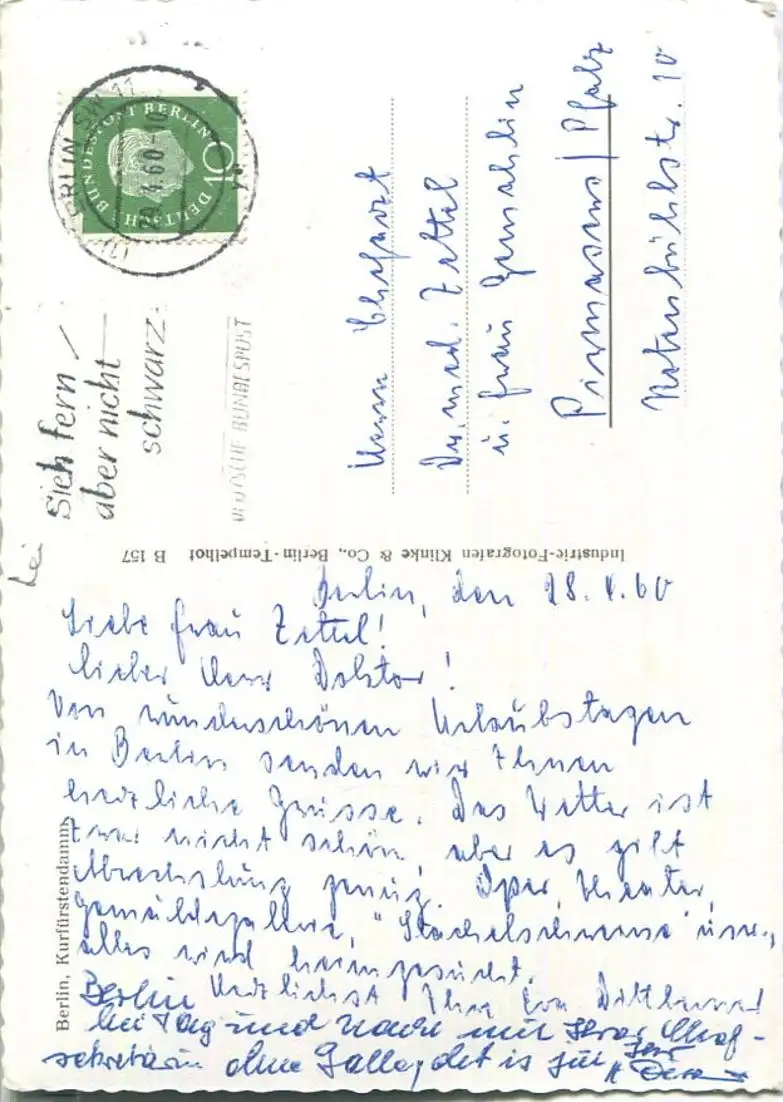 DEUTSCHE BUNDESPOST BERLIN
10
BERLIN SW 11
Sieh fern
aber nicht
schwarz
DEUTSCHE BUNDESPOST
Herrn Chefarzt
Dr. med. Zettel
u. Frau Gemahlin
Pirmasens / Pfalz
10
Industrie-Fotografen Klinke & Co., Berlin-Tempelhof B 157
Berlin, Kurfürstendamm
Berlin, den 28. 4. 60
Liebe Frau Zettel!
lieber Herr Doktor!
Von wunderschönen Urlaubstagen
in Berlin senden wir Ihnen
herzliche Grüsse. Das Wetter ist
zwar nicht schön, aber es gibt
Abwechslung genug. Oper, Theater,
Gemäldegallerie, "Stachelschweine" usw.,
alles wird heimgesucht.
Herzlichst Ihre Eva
Berlin
bei Tag und Nacht mit Ihrer Chef-
sekretärin ohne Galle, det is